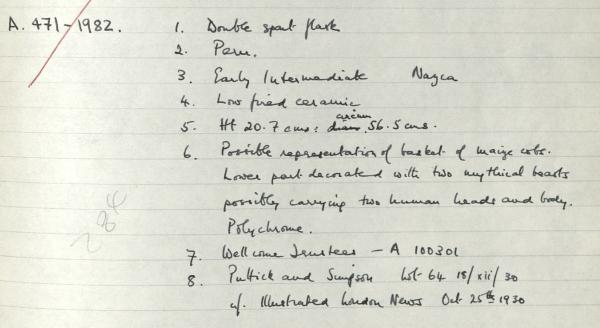 A. 471-1982. 1. Double spout flask
2. Peru.
3. Early Intermediate Nazca
4. Low fired ceramic
5. Ht 20.7 cms: diam. circum 56.5 cms.
6. Possible representation of basket of maize cobs.
Lower part decorated with two mythical beasts
possibly carrying two human heads and body.
Polychrome.
284
7. Wellcome Trustees - A 100301
8. Puttick and Simpson Lot 64 18/xii/30
cf. Illustrated London News Oct 25th 1930